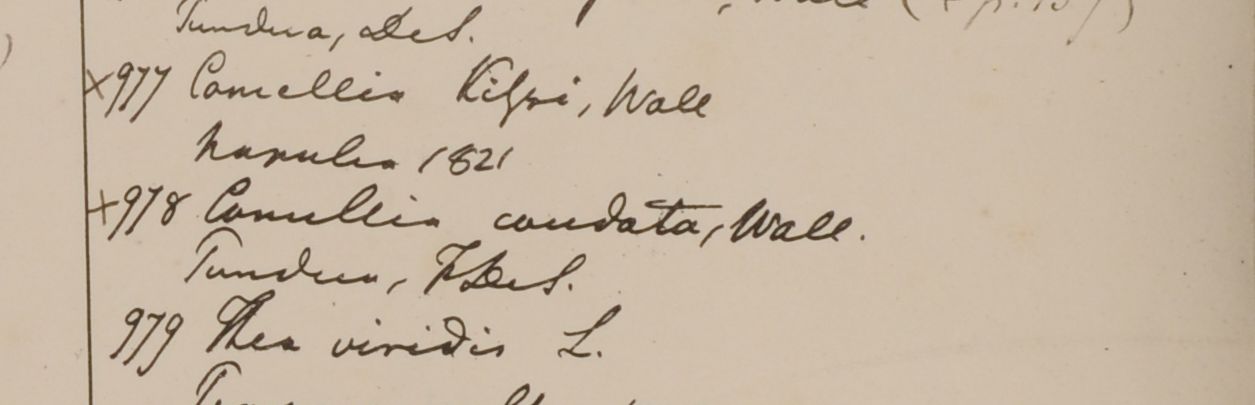 Wall (
Tundua, DeS.
×977 Camellia Kissi, Wall
Napulia 1821
×978 Camellia caudata, Wall.
Tundua, F. DeS.
979 Thea viridis L.